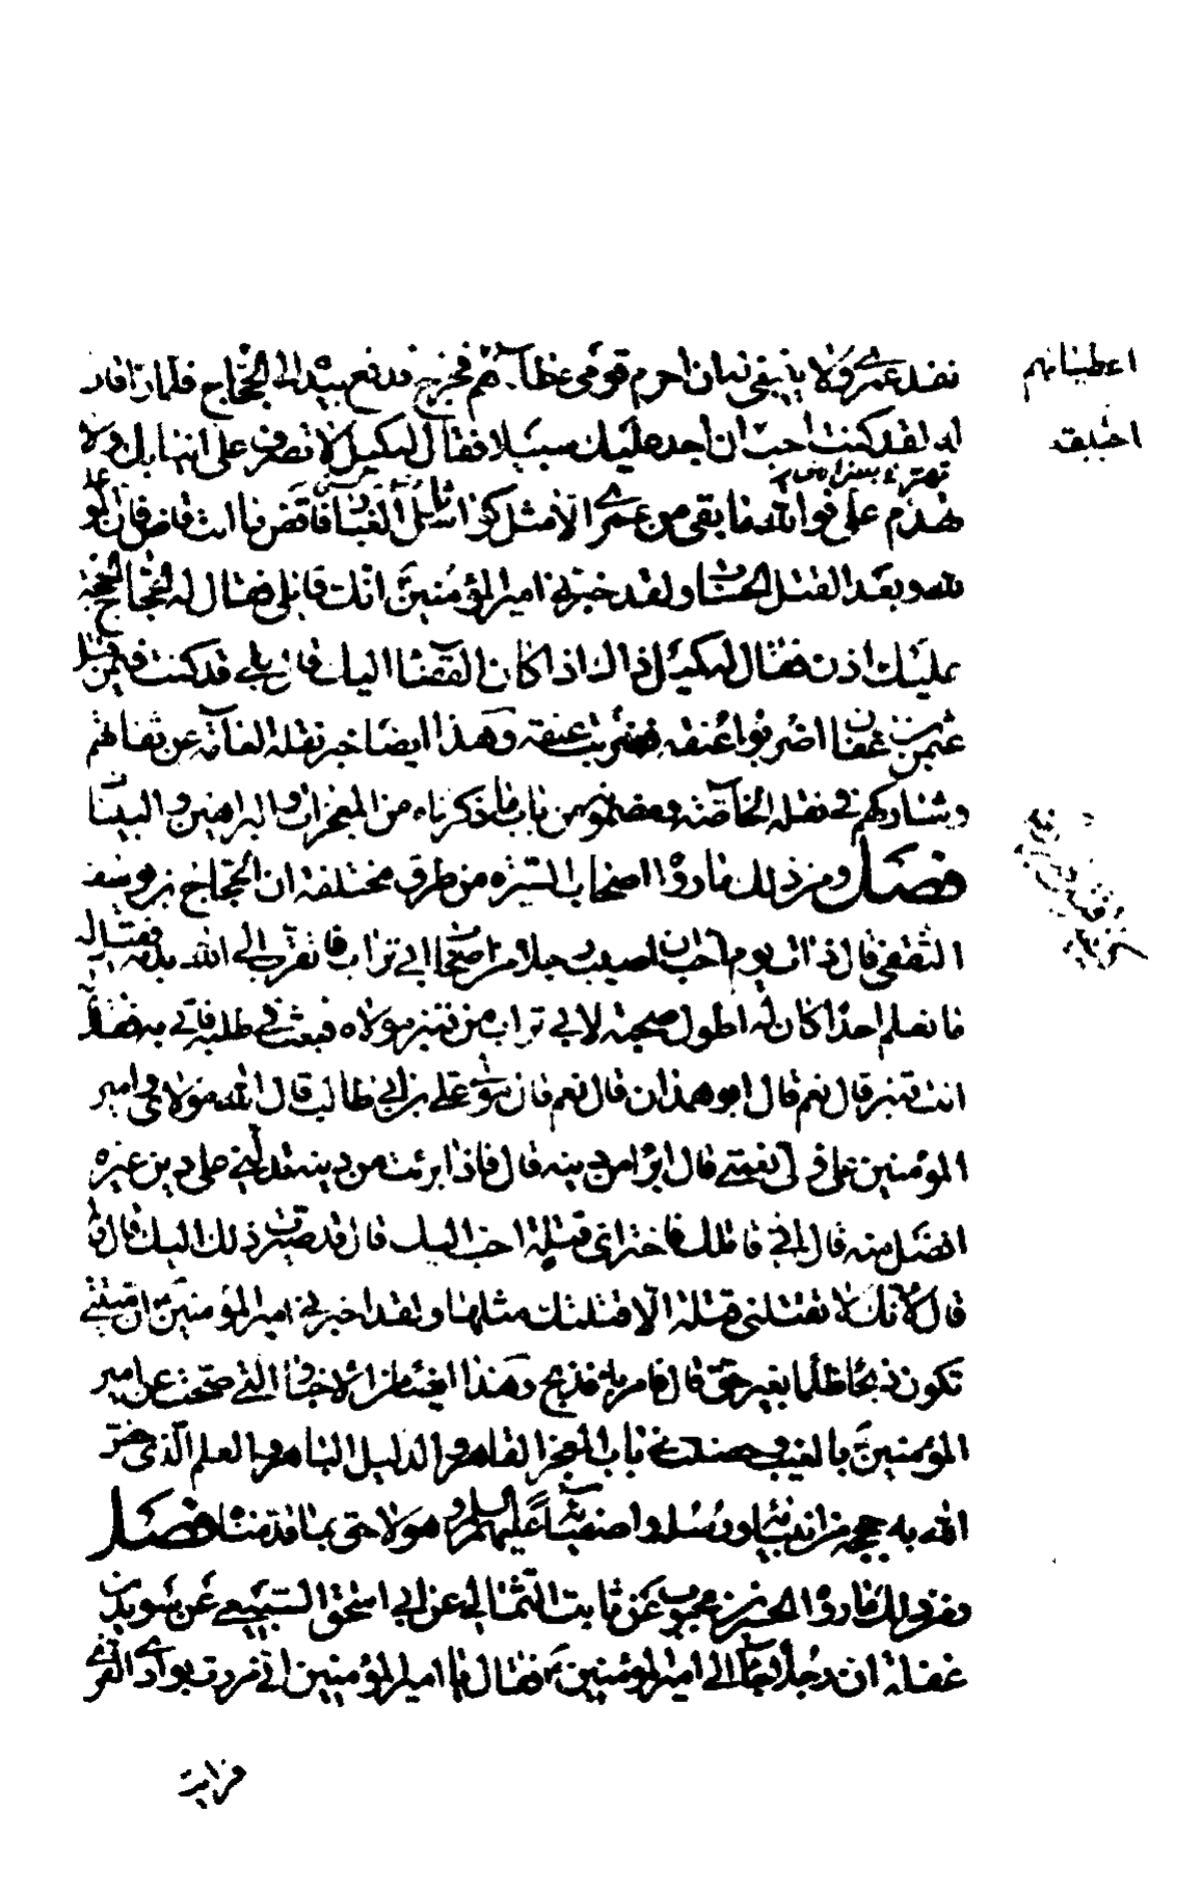 نفد عمري ولا ينبغي ان احرم قومي عطاهم فخرج فدفع بيده الى الحجاج فلما راه قال
له لقد كنت احب ان اجد عليك سبيلا فقال له كميل لا تصرف علي انيابك ولا
تهدم علي فوالله ما بقي من عمري الا مثل كواسل الغبار فاقض ما انت قاض فان الموعد
لله وبعد القتل الحساب ولقد خبرني امير المؤمنين انك قاتلي فقال له الحجاج الحجة
عليك اذن فقال له كميل ذاك اذا كان القضا اليك قال بلى قد كنت فيمن قتل
عثمن بن عفان اضربوا عنقه فضربت عنقه وهذا ايضا خبر نقله العامة عن ثقاتهم
وشاركهم في نقله الخاصة ومضمونه من باب ما ذكرناه من المعجزات والبراهين والبينات
فصل ومن ذلك ما رواه اصحاب السيرة من طرق مختلفة ان الحجاج بن يوسف
الثقفي قال ذات يوم احب ان اصيب رجلا من اصحاب ابي تراب فاتقرب الى الله بدمه فقيل له
ما نعلم احدا كان له اطول صحبة لابي تراب من قنبر مولاه فبعث في طلبه فاتي به فقال له
انت قنبر قال نعم قال ابو همدان قال نعم قال مولى علي بن ابي طالب قال الله مولاي وامير
المؤمنين علي ولي نعمتي قال ابرا من دينه قال فاذا برئت من دينه تدلني على دين غيره
افضل منه قال اني قاتلك فاختر اي قتلة احب اليك قال قد صيرت ذلك اليك قال ولم
قال لانك لا تقتلني قتلة الا قتلتك مثلها ولقد اخبرني امير المؤمنين ان منيتي
تكون ذبحا ظلما بغير حق قال فامر به فذبح وهذا ايضا من الاخبار التي صحت عن امير
المؤمنين بالغيب وحصلت في باب المعجز القاهر والدليل الباهر والعلم الذي خص
الله به حججه من انبيائه ورسله واصفيائه عليهم السلم وهو لاحق بما قدمناه فصل
ومن ذلك ما رواه الحسن بن محبوب عن ثابت الثمالي عن ابي اسحق السبيعي عن سويد بن
غفلة ان رجلا جاء الى امير المؤمنين فقال يا امير المؤمنين اني مررت بوادي القرى
فرايت
اعطياتهم